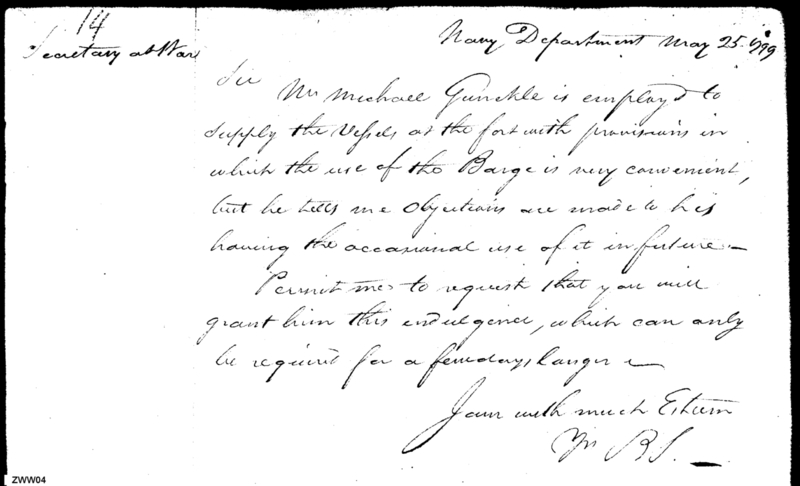 14
Secretary at War
Navy Department May 25. 1799
Sir
Mr Michael Gunckle is employ'd to
supply the Vessels at the fort with provisions in
which the use of the Barge is very convenient,
but he tells me Objections are made to his
having the occasional use of it in future –
Permit me to request that you will
grant him this indulgence, which can only
be required for a few days longer –
I am with much Esteem
Yr BS. –
ZWW04